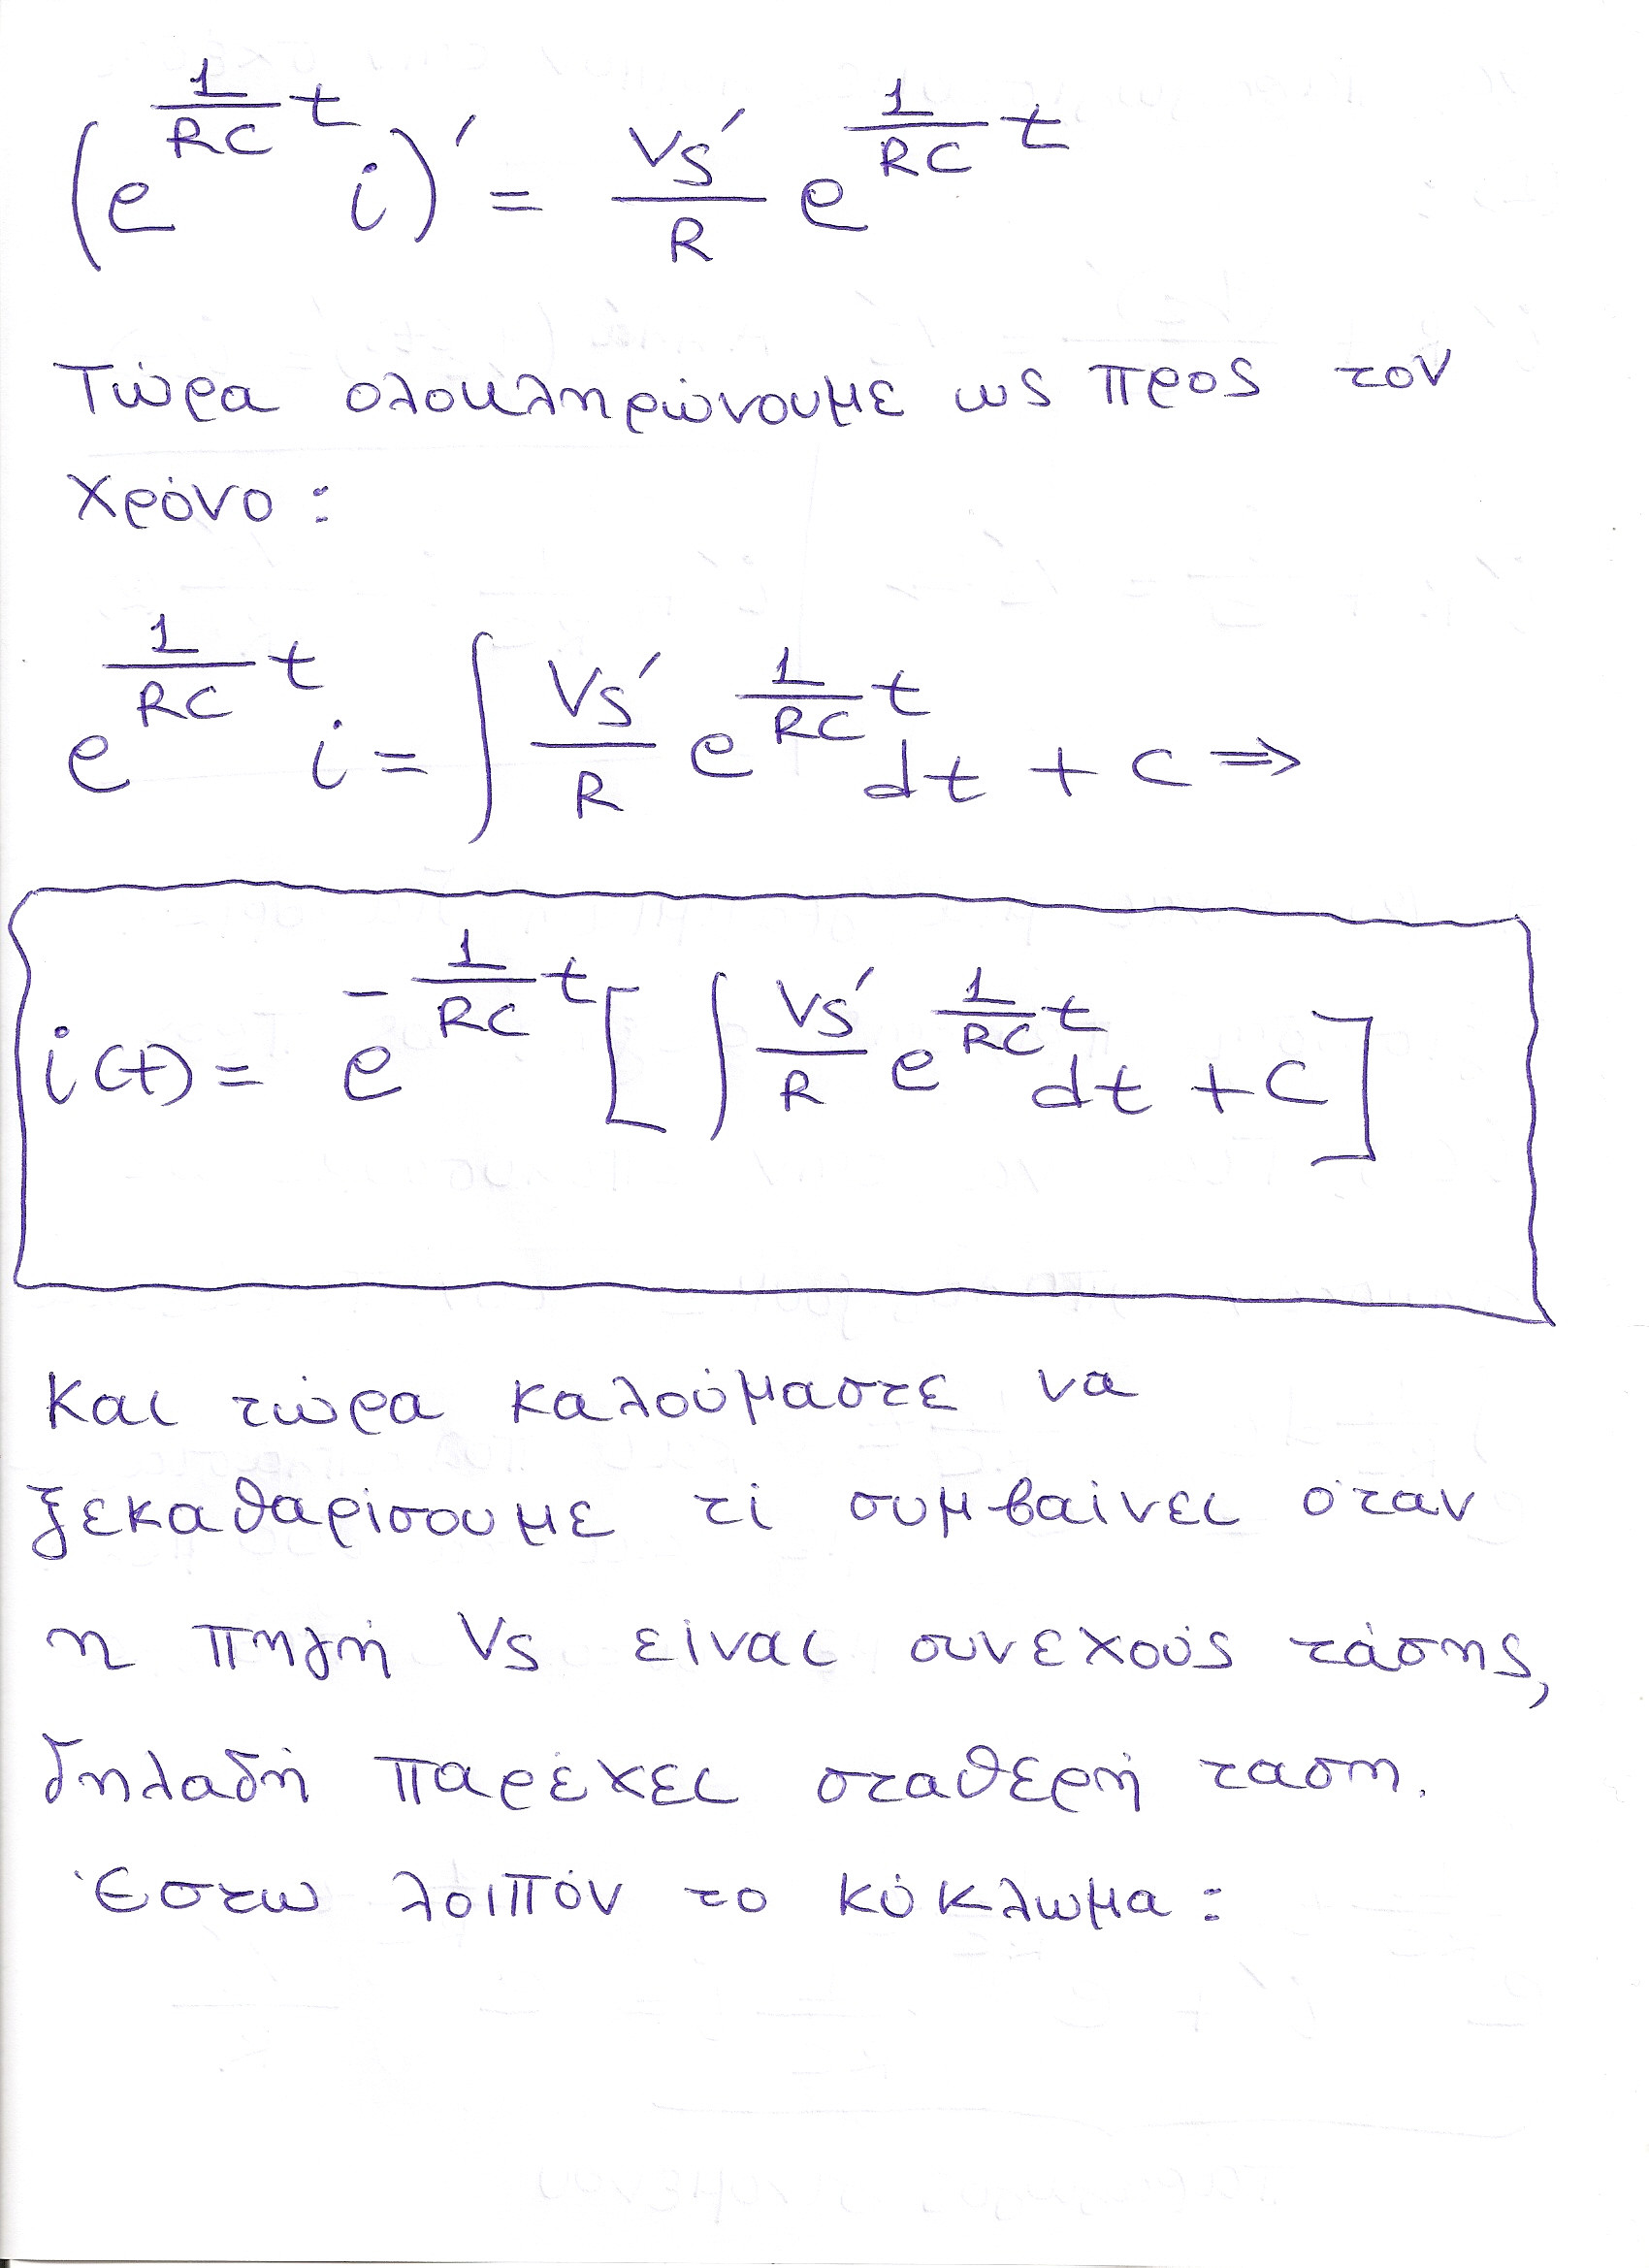 (e^{\frac{1}{RC}t} i)' = \frac{Vs'}{R} e^{\frac{1}{RC}t}
Τώρα ολοκληρώνουμε ως προς τον
χρόνο:
e^{\frac{1}{RC}t} i = \int \frac{Vs'}{R} e^{\frac{1}{RC}t} dt + c ⇒
i(t) = e^{-\frac{1}{RC}t} [ \int \frac{Vs'}{R} e^{\frac{1}{RC}t} dt + c ]
Και τώρα καλούμαστε να
ξεκαθαρίσουμε τί συμβαίνει όταν
η πηγή Vs είναι συνεχούς τάσης,
δηλαδή παρέχει σταθερή ταση.
Έστω λοιπόν το κύκλωμα: